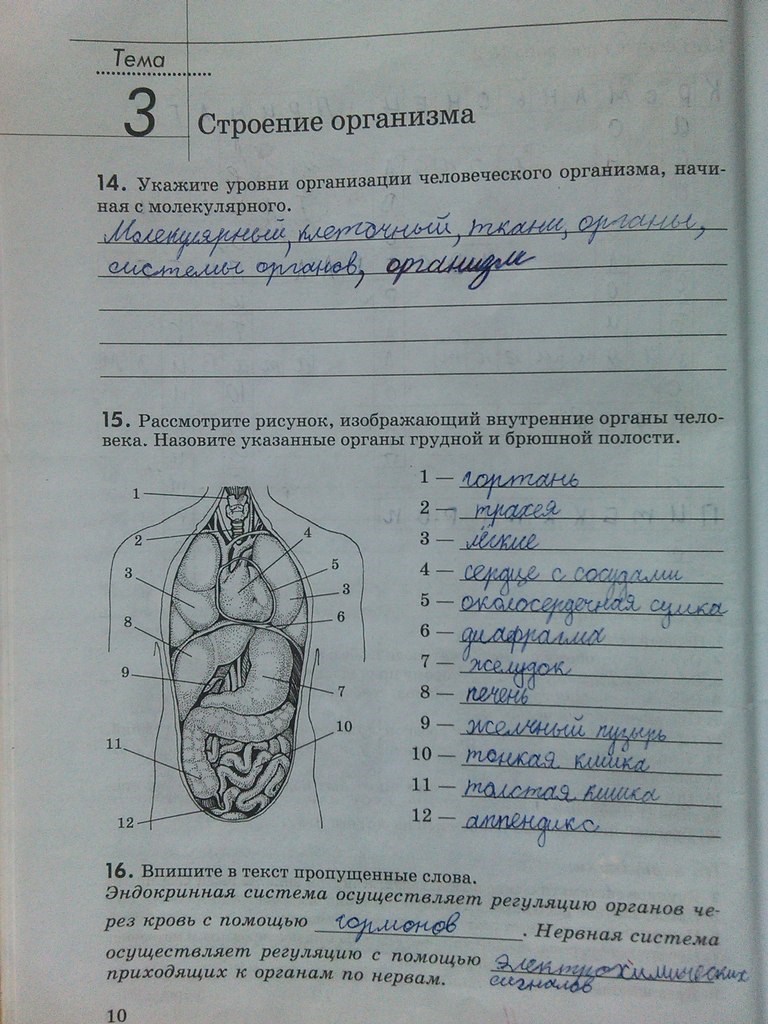 Тема
3 Строение организма
14. Укажите уровни организации человеческого организма, начи-
ная с молекулярного.
Молекулярный, клеточный, ткани, органы,
системы органов, организм
15. Рассмотрите рисунок, изображающий внутренние органы чело-
века. Назовите указанные органы грудной и брюшной полости.
1
2
3
8
9
11
12
4
5
3
6
7
10
1 — гортань
2 — трахея
3 — лёгкие
4 — сердце с сосудами
5 — околосердечная сумка
6 — диафрагма
7 — желудок
8 — печень
9 — желчный пузырь
10 — тонкая кишка
11 — толстая кишка
12 — аппендикс
16. Впишите в текст пропущенные слова.
Эндокринная система осуществляет регуляцию органов че-
рез кровь с помощью гормонов. Нервная система
осуществляет регуляцию с помощью электрохимических
сигналов
приходящих к органам по нервам.
10